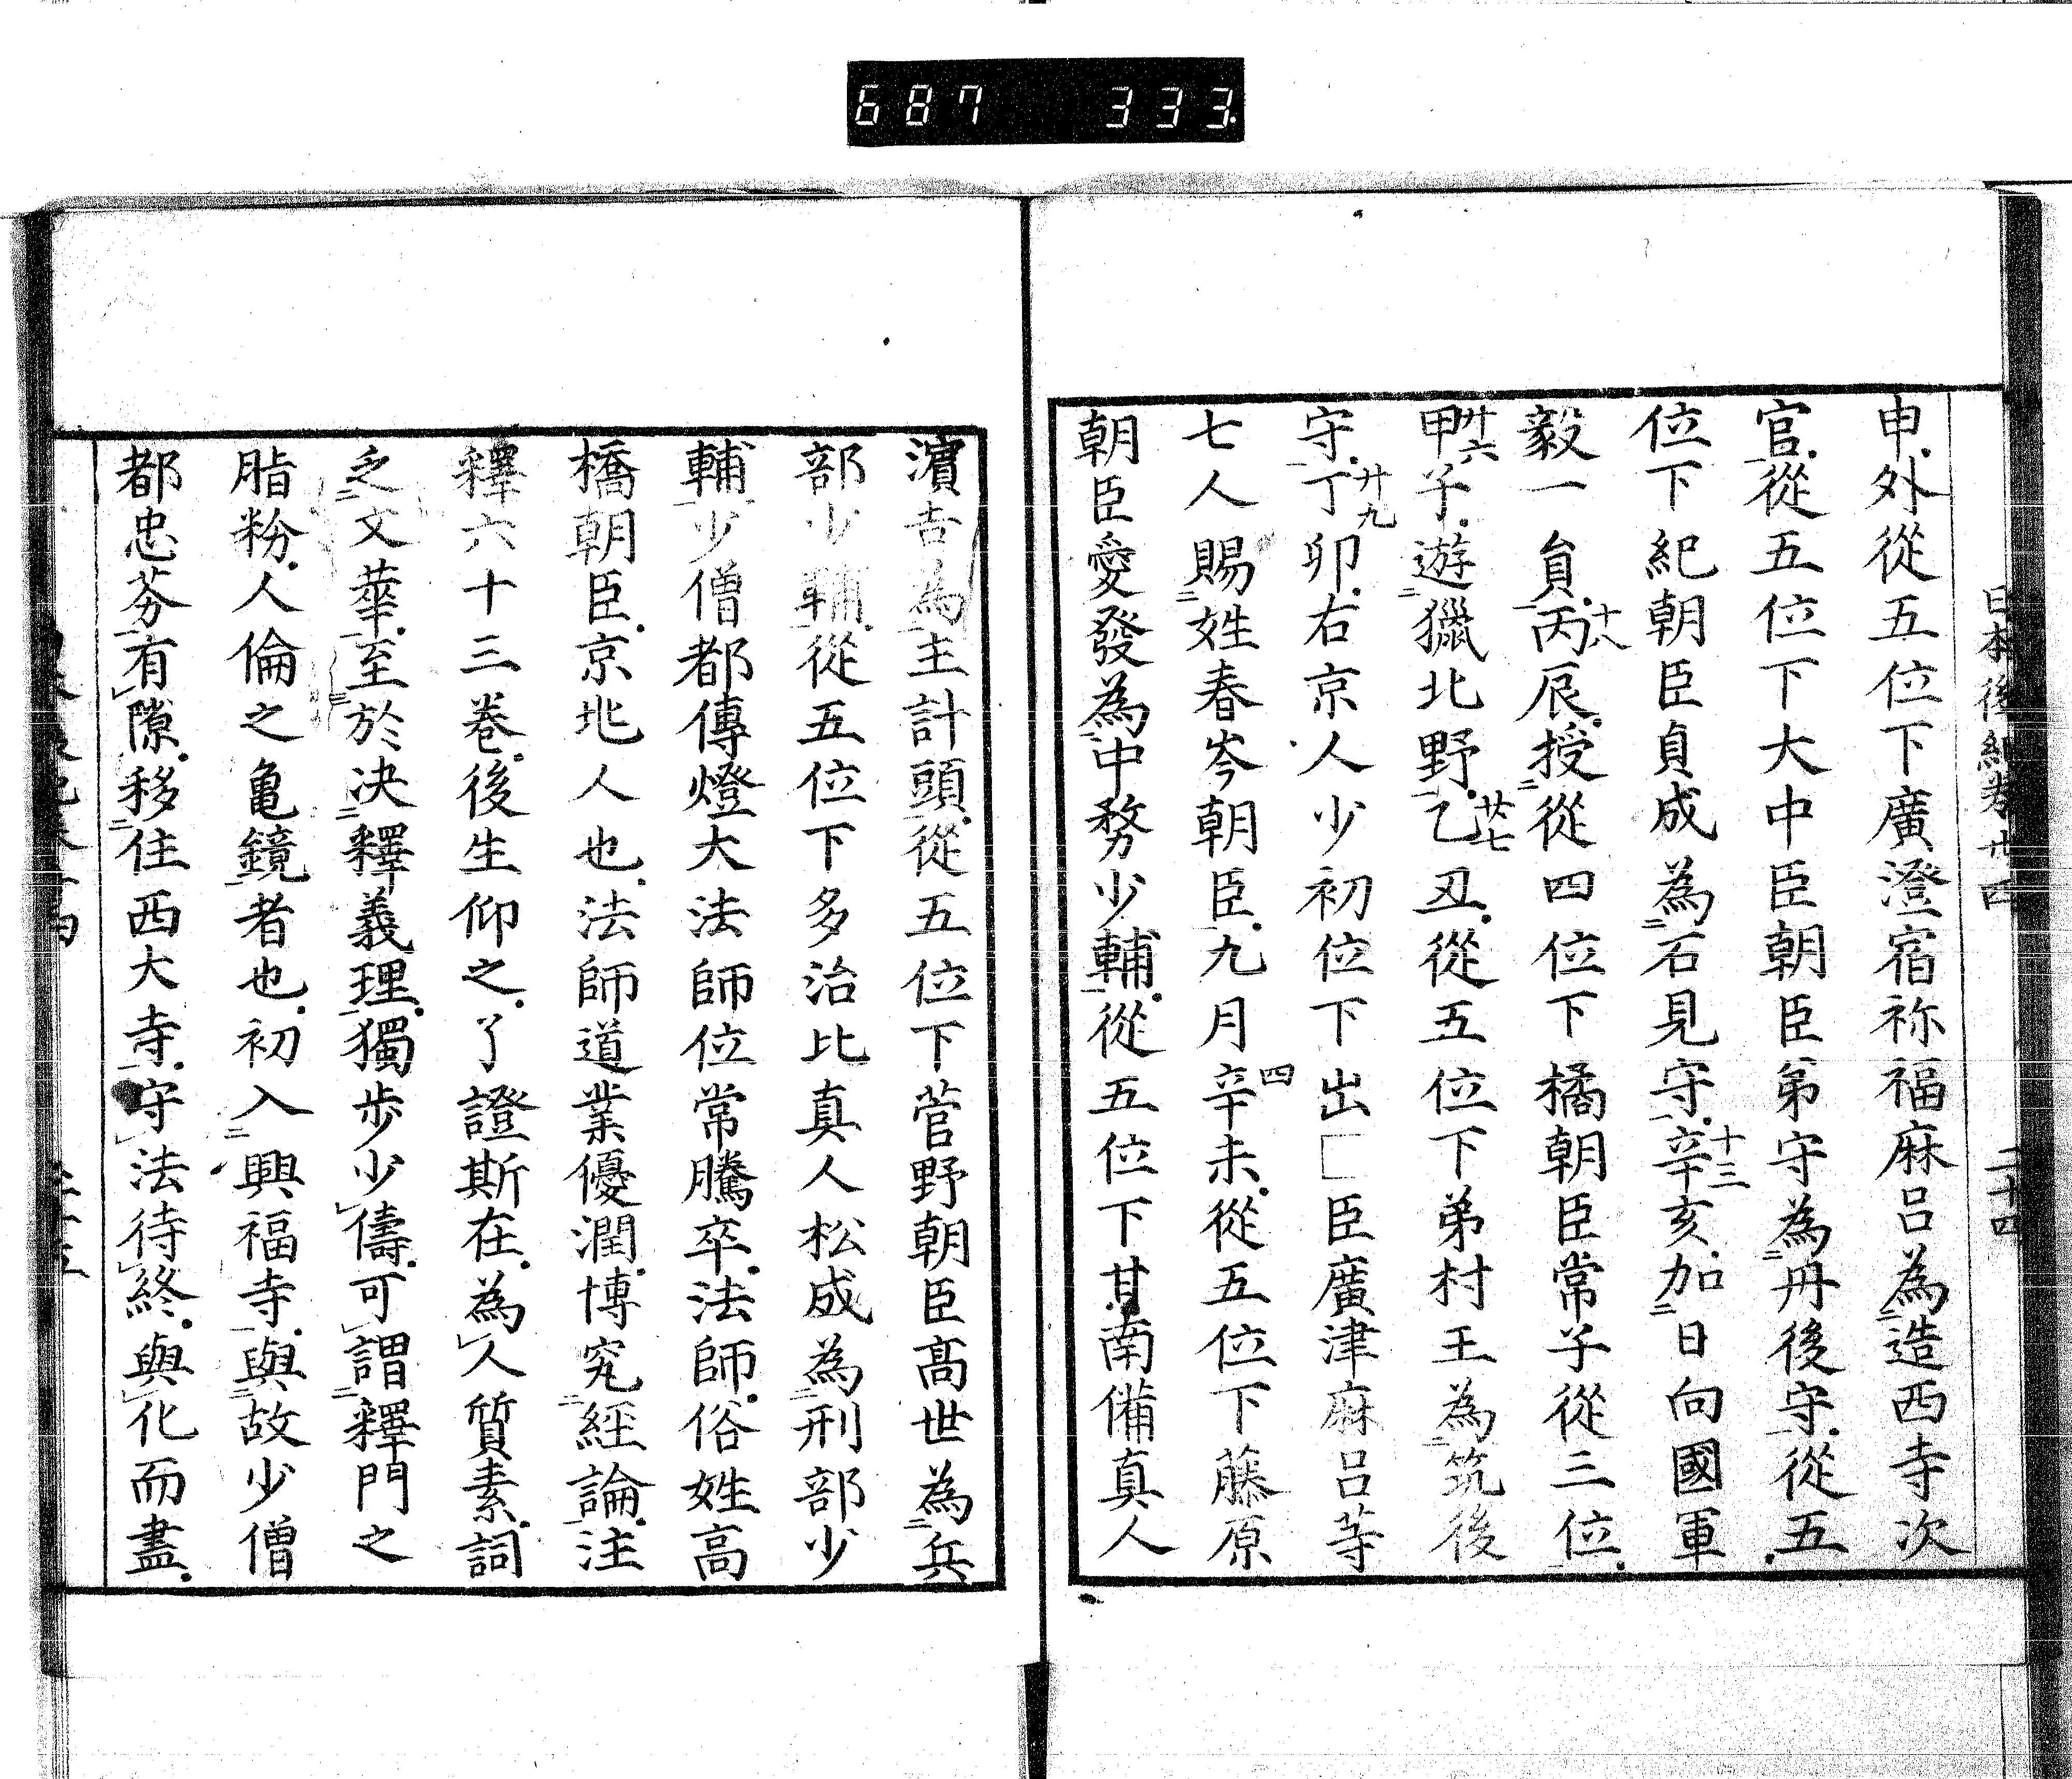 687 333.
日本後紀巻廿四 二十四
申外從五位下廣澄宿祢福麻呂為造西寺次
官從五位下大中臣朝臣弟守為丹後守從五
位下紀朝臣貞成為石見守辛亥十三加日向國軍
毅一員丙辰十八授從四位下橘朝臣常子從三位
甲子廿六遊獵北野乙丑廿七從五位下弟村王為筑後
守丁卯廿九右京人少初位下出 臣廣津麻呂等
七人賜姓春岑朝臣九月辛未四從五位下藤原
朝臣愛發為中務少輔從五位下甘南備真人
濱吉為主計頭從五位下菅野朝臣髙世為兵
部少輔從五位下多治比真人松成為刑部少
輔少僧都傳燈大法師位常騰卒法師俗姓高
橋朝臣京兆人也法師道業優潤博究經論注
釋六十三巻後生仰之了證斯在為人質素詞
乏文華至於决釋義理獨歩少儔可謂釋門之
脂粉人倫之亀鏡者也初入興福寺與故少僧
都忠芬有隙移住西大寺守法待終與化而盡